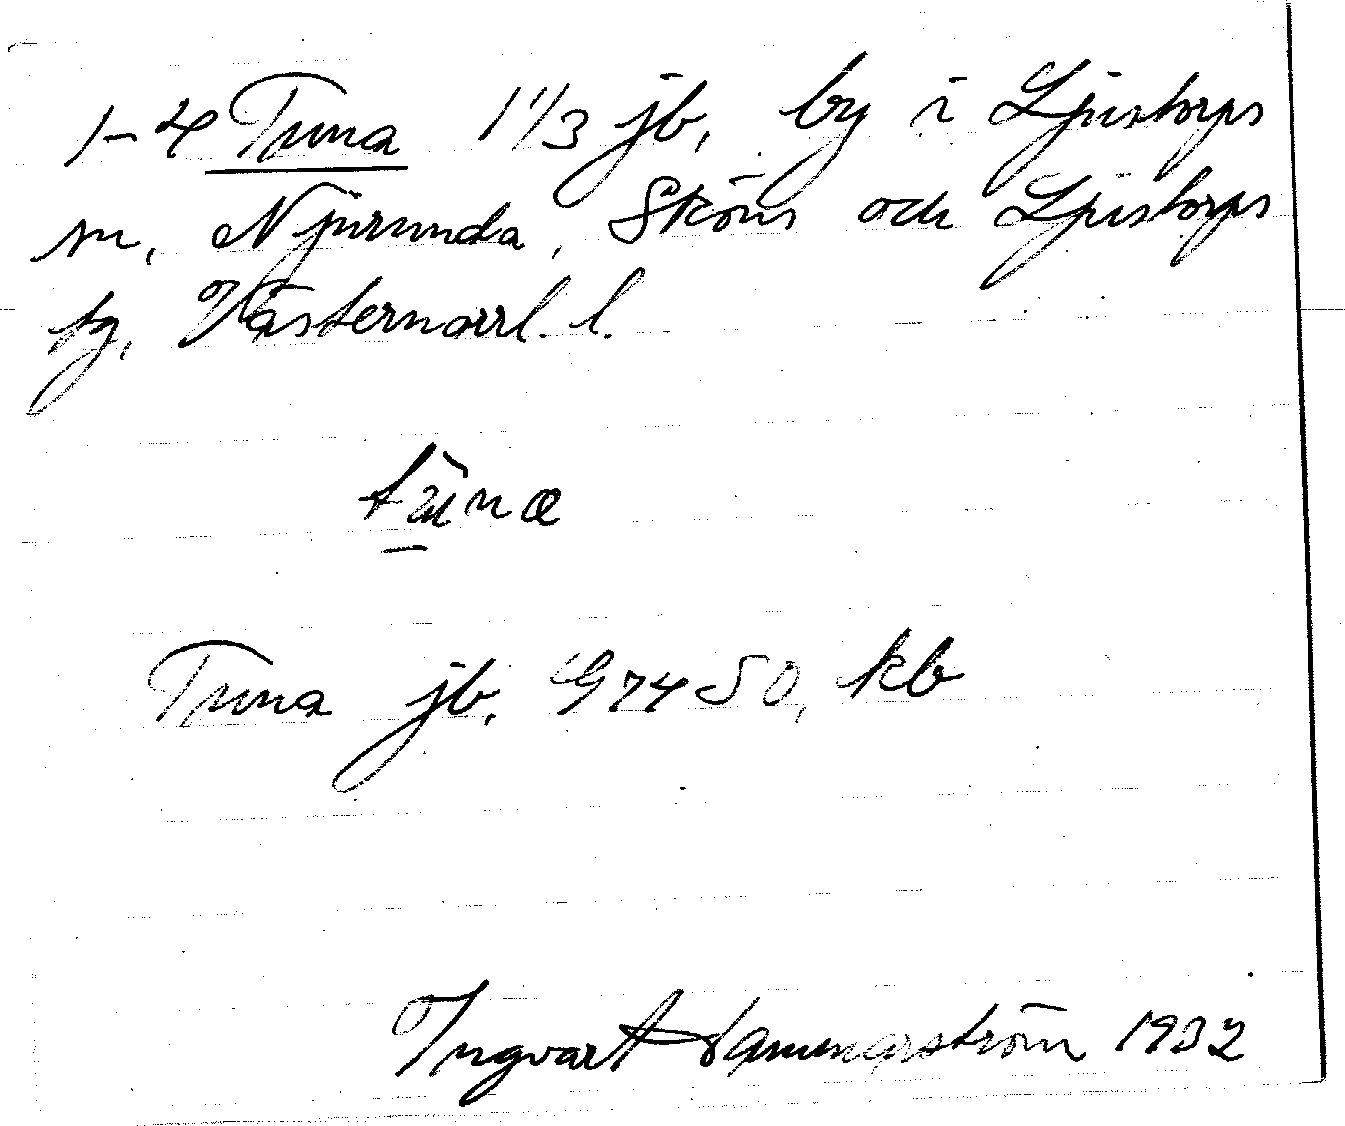 1-4 Tuna 1 1/3 jb, by i Ljustorps
sn, Njurunda, Sköns och Ljustorps
tg, Västernorrl. l.
Tuna jb. G 74 50, kb
Ingvar Hammarström 1932